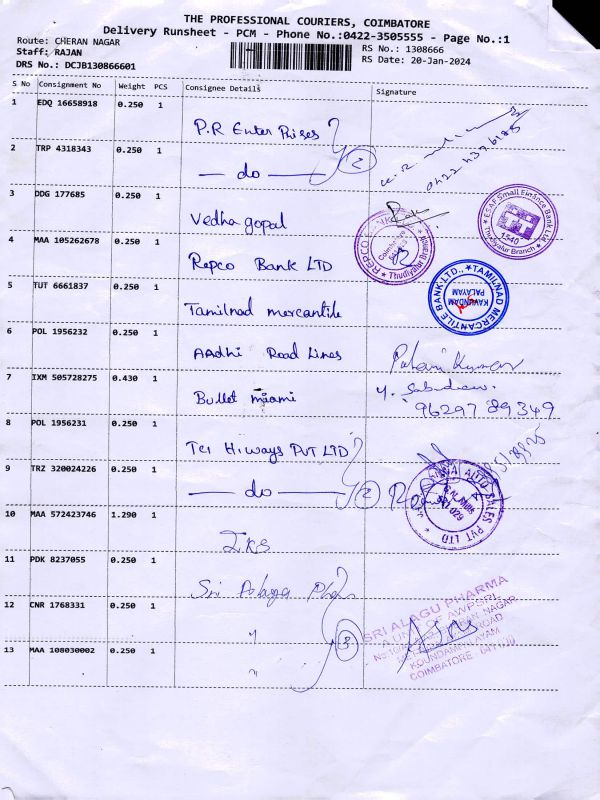 THE PROFESSIONAL COURIERS, COIMBATORE
Delivery Runsheet - PCM - Phone No.:0422-3505555 - Page No.:1
Route: CHERAN NAGAR
RS No.: 1308666
Staff: RAJAN
RS Date: 20-Jan-2024
DRS No.: DCJB130866601
S No Consignment No Weight PCS Consignee Details Signature
1 EDQ 16658918 0.250 1 P.R Enter Prises
2 TRP 4318343 0.250 1 — do — 2
3 DDG 177685 0.250 1 Vedha gopal
ESAF Small Finance Bank Ltd
1540
Thudiyalur Branch
4 MAA 105262678 0.250 1 Repco Bank LTD
REPCO BANK
Thudiyalur Branch
5 TUT 6661837 0.250 1 Tamilnad mercantile
TAMILNAD MERCANTILE BANK LTD.,
KAUNDAM PALAYAM
6 POL 1956232 0.250 1 AAdhi Road Lines
7 IXM 505728275 0.430 1 Bullet miami
96297 89349
8 POL 1956231 0.250 1 Tci Hiways PVT LTD
9 TRZ 320024226 0.250 1 — do — 2
AUTO SALES PVT LTD
10 MAA 572423746 1.290 1
11 PDK 8237055 0.250 1 Sri
12 CNR 1768331 0.250 1 " 3
SRI ALAGU PHARMA
A UNIT OF
NAGAR
ROAD
KOUNDAMPALAYAM
COIMBATORE
13 MAA 108030002 0.250 1 "